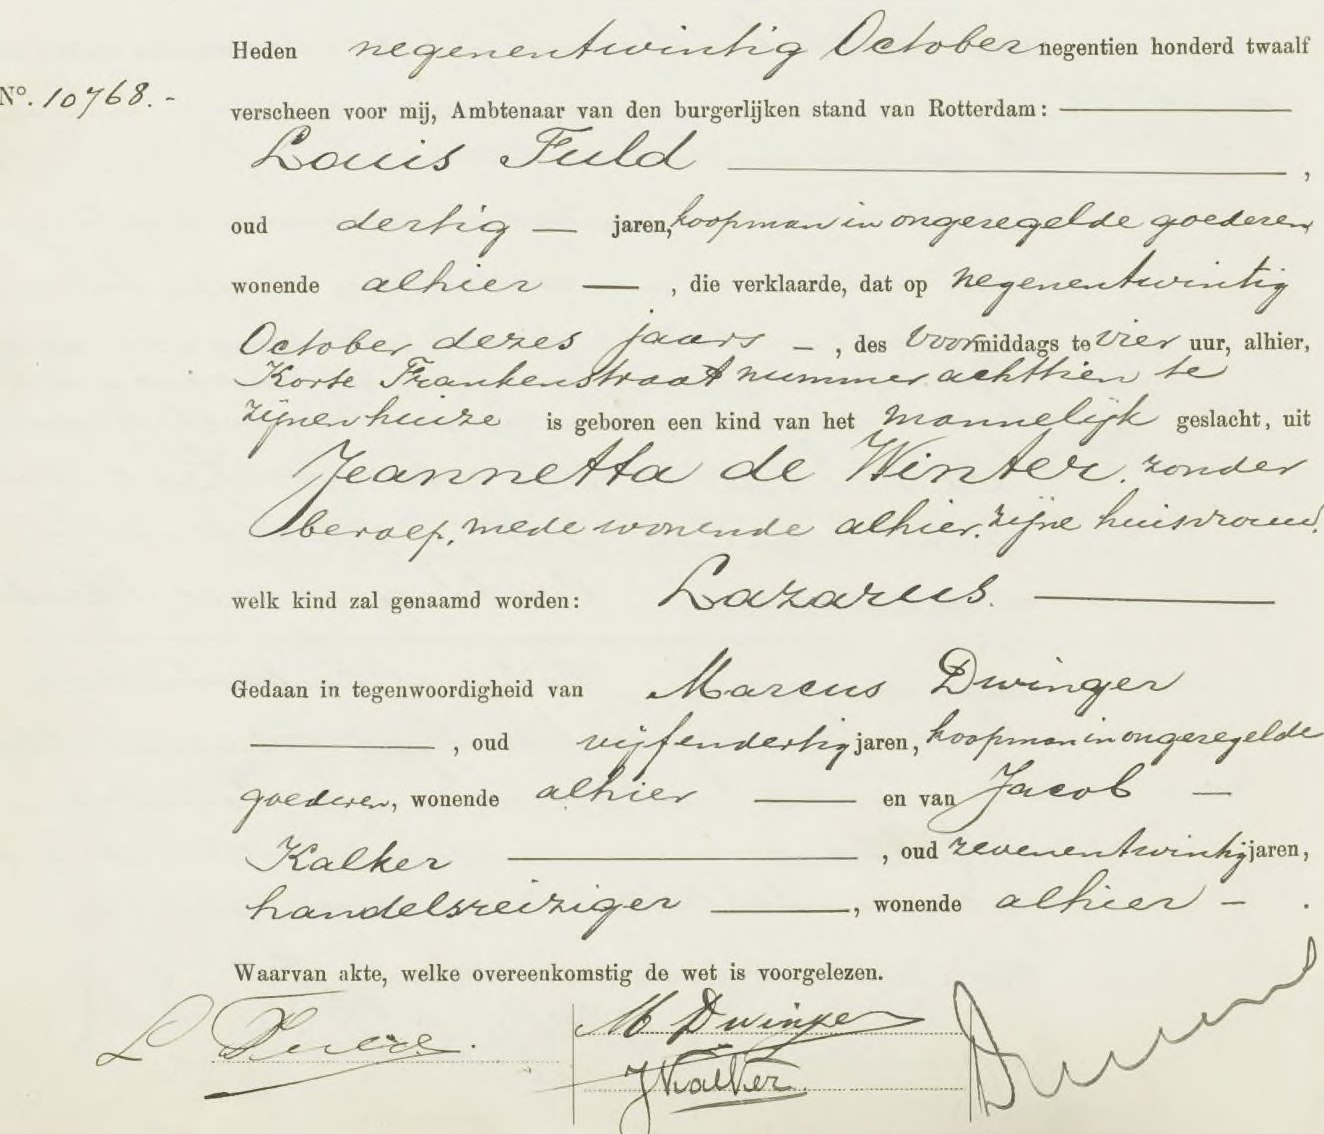 Heden negenentwintig October negentien honderd twaalf
No. 10768. -
verscheen voor mij, Ambtenaar van den burgerlijken stand van Rotterdam:
Louis Fuld ,
oud dertig — jaren, koopman in ongeregelde goederen
wonende alhier — , die verklaarde, dat op negenentwintig
October dezes jaars - , des voormiddags te vier uur, alhier,
Korte Frankenstraat nummer achttien te
zijnen huize is geboren een kind van het mannelijk geslacht, uit
Jeannetta de Winter, zonder
beroep, mede wonende alhier, zijne huisvrouw,
welk kind zal genaamd worden: Lazarus.
Gedaan in tegenwoordigheid van Marcus Dwinger
, oud vijfendertig jaren, koopman in ongeregelde
goederen, wonende alhier — en van Jacob —
Kalker , oud zevenentwintig jaren,
handelsreiziger , wonende alhier - .
Waarvan akte, welke overeenkomstig de wet is voorgelezen.
L Fuld. M Dwinger
J Kalker.